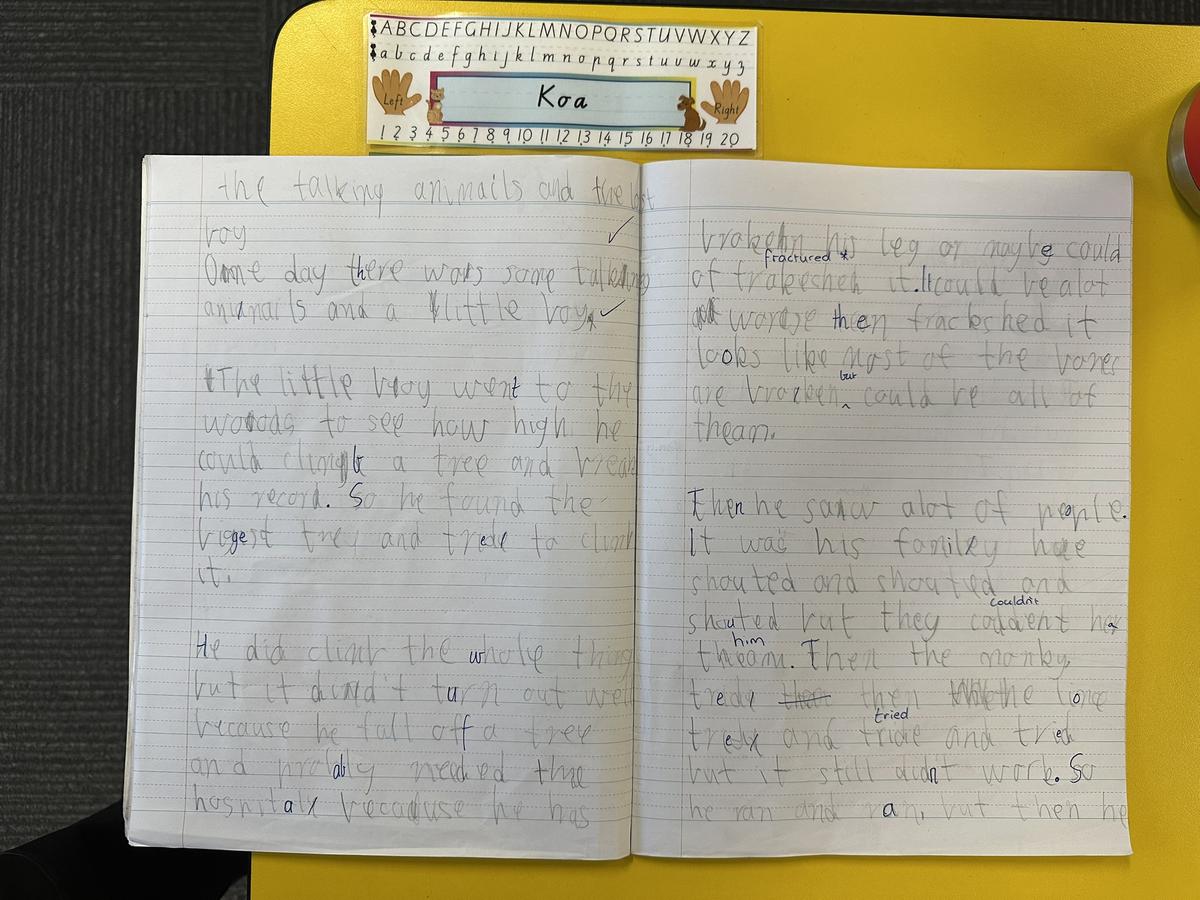 ABCDEFGHIJKLMNOPQRSTUVWXYZ
abcdefghijklmnopqrstuvwxyz
Left
Koa
Right
1 2 3 4 5 6 7 8 9 10 11 12 13 14 15 16 17 18 19 20
the talking animails and the lost
boy
One day there was some talking
animails and a little boy.
The little boy went to the
woods to see how high he
could climb a tree and break
his record. So he found the
bigest tree and trede to climb
it.
He did climb the whole thing
but it didn't turn out well
because he fall off a tree
and probably needed the
hospital because he has
braken his leg or maybe could
fractured *
of frakeshed it. It could be alot
worse then frackshed it
looks like most of the bones
but
are brocken ^ could be all of
them.
Then he saw alot of people.
It was his family he
shouted and shouted and
couldn't
shouted but they couldent hear
him
theam. Then the monky
tredy then the lione
tried
tredy and tride and tried
but it still didnt work. So
he ran and ran, but then he